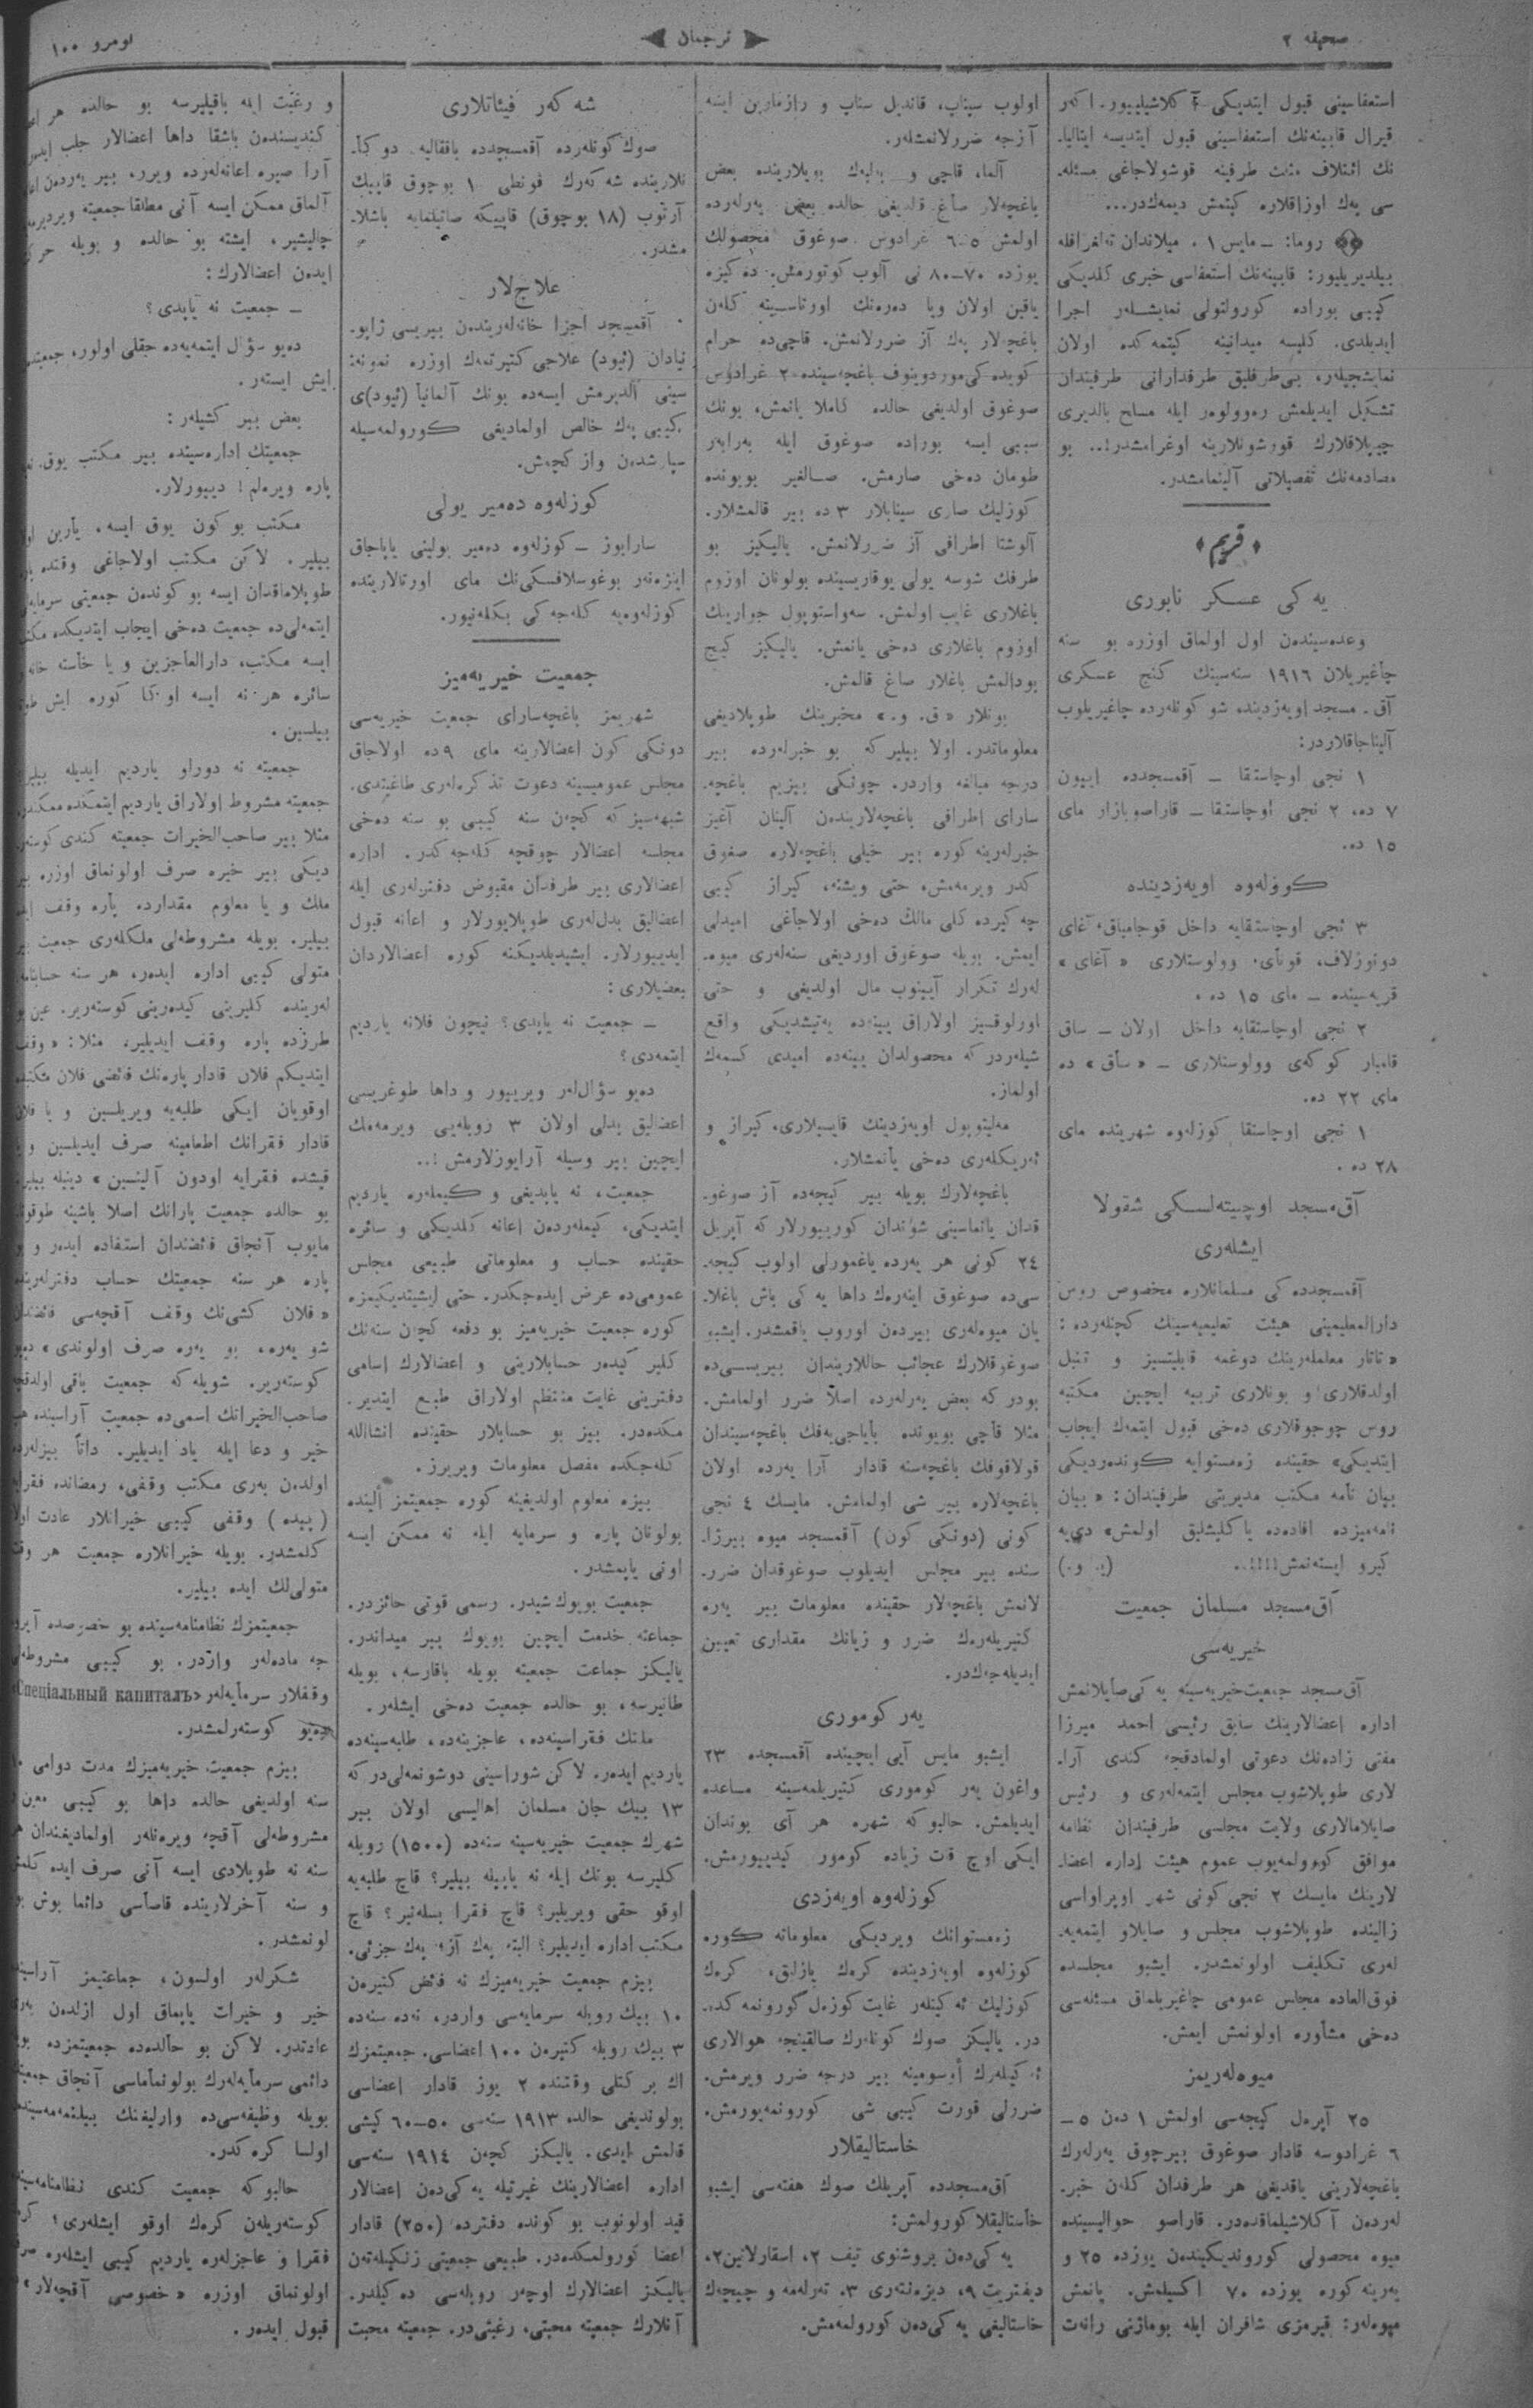 صحیفه ۲
ترجمان
نومرو ۱۰۰
استعفاسینی قبول ایتدیکی آکلاشیلییور. اکەر
قیرال قابینەنك استعفاسینی قبول ایتدیسە ایتالیا-
نك ائتلاف مثلث طرفینه قوشولاجاغی مسئلە-
سی پەك اوزاقلاره کیتمش دیمەكدر...
روما: – مایس ۱ . میلاندان تەلغرافله
بیلدیریلیور: قابینەنك استعفاسی خبری کلدیکی
کیبی بوراده کورولتولی نمایشلەر اجرا
ایدیلدی. کلیسە میدانینه کیتمەکده اولان
نمایشچیلەر، بی‌طرفلیق طرفدارانی طرفیندان
تشکیل ایدیلمش رەوولوەر ایله مسلح بالدیری
چیپلاقلارك قورشونلارینه اوغرامشدر!.. بو
مصادمەنك تفصیلاتی آلینمامشدر.
« قریم »
یەکی عسکر نابوری
وعدەسیندەن اول اولماق اوزره بو سنە
چاغیریلان ۱۹۱۶ سنەسینك کنج عسکری
آق‌مسجد اویەزدینده شو کونلەرده چاغیریلوب
آلیناجاقلاردر:
۱ نجی اوچاستقا – آقمسجدده اییون
۷ ده، ۲ نجی اوچاستقا – قاراصوبازار مای
۱۵ ده.
کوزلەوه اویەزدینده
۳ نجی اوچاستقایه داخل قوجامباق، آغای
دونوزلاف، قونأی، وولوستلاری « آغای »
قریەسینده – مای ۱۵ ده .
۲ نجی اوچاستقایه داخل اولان – ساق
قامبار کوکەی وولوستلاری – « سأق » ده
مای ۲۲ ده.
۱ نجی اوچاستقا کوزلەوه شهرینده مای
۲۸ ده .
آق‌مسجد اوچیتەلسکی شقولا
ایشلەری
آقمسجدده کی مسلمانلاره مخصوص روس
دارالمعلیمینی هیئت تعلیمیەسینك کچنلەرده :
« تاتار معلملەرینك دوغمه قابلیتسیز و تنبل
اولدقلاری و بونلاری تربیه ایچین مکتبه
روس چوجوقلاری دەخی قبول ایتمەك ایجاب
ایتدیکی» حقینده زەمستوایه کوندەردیکی
بیان نامه مکتب مدیریتی طرفیندان: « بیان
نامەمیزده افادەده یاکلیشلیق اولمش» دییه
کیرو ایستەنمش!!!!.. (ی. و.)
آق‌مسجد مسلمان جمعیت
خیریەسی
آق‌مسجد جمعیت‌خیریەسینه یەکی‌صایلانمش
اداره اعضالارینك سابق رئیسی احمد میرزا
مفتی زادەنك دعوتی اولمادقچه کندی آرا-
لاری طوپلاشوب مجلس ایتمەلەری و رئیس
صایلامالاری ولایت مجلسی طرفیندان نظامه
موافق کورولمەیوب عموم هیئت اداره اعضا-
لارینك مایسك ۲ نجی‌کونی شهر اوپراواسی
زالینده طوپلاشوب مجلس و صایلاو ایتمەیە-
لەری تکلیف اولونمشدر. ایشبو مجلسده
فوق‌العاده مجلس عمومی چاغیریلماق مسئلەسی
دەخی مشأوره اولونمش ایمش.
میوەلەریمز
۲۵ آپرەل کیجەسی اولمش ۱ دەن ۵ –
۶ غرادوسه قادار صوغوق بیرچوق یەرلەرك
باغچەلارینی یاقدیغی هر طرفدان کلەن خبر-
لەردەن آکلاشیلماقدەدر. قاراصو حوالیسینده
میوه محصولی کوروندیکیندەن یوزده ۲۵ و
یەرینه کوره یوزده ۷۰ اکسیلمش. یانمش
میوەلەر: قیرمزی شافران ایله بوماژنی رانەت
اولوب سیناپ، قاندیل سناپ و رازمارین اینته
آزجه ضررلانمشلەر.
آلما، قاچی و بەلبەك بویلارینده بعض
باغچەلار صأغ قالدیغی حالده بعض یەرلەرده
اولمش ۵–۶ غرادوس صوغوق محصولك
یوزده ۷۰–۸۰ نی آلوب کوتورمش. دەکیزه
یاقین اولان ویا دەرەنك اورتاسینه کلەن
باغچەلار پەك آز ضررلانمش. قاچی‌ده حرام
کویده کی‌موردوینوف باغچەسینده ۲۰ غرادوس
صوغوق اولدیغی حالده کاملا یانمش، بونك
سببی ایسە بوراده صوغوق ایله بەرابەر
طومان دەخی صارمش. صالغیر بویونده
کوزلیك صاری سینابلار ۳ ده بیر قالمشلار.
آلوشتا اطرافی آز ضررلانمش. یالیکیز بو
طرفك شوسه یولی یوقاریسینده بولونان اوزوم
باغلاری غایب اولمش. سەواستوپول جوارینك
اوزوم باغلاری دەخی یانمش. یالیکیز کیچ
بودالمش باغلار صاغ قالمش.
بونلار « ق. و.» مخبرینك طوپلادیغی
معلوماتدر. اولا بیلیرکه بو خبرلەرده بیر
درجه مبالغه واردر. چونکی بیزیم باغچە-
سارای اطرافی باغچەلاریندەن آلینان آغیز
خبرلەرینه کوره بیر خیلی باغچەلاره صغوق
کدر ویرمەمش، حتی ویشنه، کیراز کیبی
چەکیرده کلی مالك دەخی اولاجاغی امیدلی
ایمش. بویله صوغوق اوردیغی سنەلەری میوە-
لەرك تکرار آیینوب مال اولدیغی و حتی
اورلوقسیز اولاراق بیتەده یەتیشدیکی واقع
شیلەردرکه محصولدان بیتەده امیدی کسمەك
اولماز.
مەلیتوپول اویەزدینك قایسیلاری، کیراز و
ئەریکلەری دەخی یأنمشلار.
باغچەلارك بویله بیر کیجەده آز صوغو-
قدان یانماسینی شوندان کورییورلار که آپریل
۲۴ کونی هر یەرده یاغمورلی اولوب کیجە-
سی‌ده صوغوق اینەرەك داها یەکی باش باغلا-
یان میوەلەری بیردەن اوروب یاقمشدر. ایشبو
صوغوقلارك عجائب حاللاریندان بیریسی‌ده
بودر که بعض یەرلەرده اصلاً ضرر اولمامش.
مثلا قأچی بویونده بأیاجی‌یەفك باغچەسیندان
قولاقوفك باغچەسنه قادار آرا یەرده اولان
باغچەلاره بیر شی اولمامش. مایسك ۴ نجی
کونی (دونکی کون) آقمسجد میوه بیرزا-
سنده بیر مجلس ایدیلوب صوغوقدان ضرر-
لانمش باغچەلار حقینده معلومات بیر یەره
کتیریلەرەك ضرر و زیانك مقداری تعیین
ایدیلەجەك‌در.
یەر کوموری
ایشبو مایس آیی ایچینده آقمسجده ۲۳
واغون یەر کوموری کتیریلمەسینه مساعده
ایدیلمش. حالبوکه شهره هر آی بوندان
ایکی اوچ قات زیاده کومور کیدییورمش.
کوزلەوه اویەزدی
زەمستوانك ویردیکی معلوماته کوره
کوزلەوه اویەزدینده کرەك یازلیق، کرەك
کوزلیك ئەکینلەر غایت کوزەل کورونمەکدە-
در. یالیکز صوك کونلەرك صالقینجه هوالاری
ئەکینلەرك أوسومینه بیر درجه ضرر ویرمش.
ضررلی قورت کیبی شی کورونمەیورمش.
خاستالیقلار
آق‌مسجدده آپریلك صوك هفتەسی ایشبو
خأستالیقلا کورولمش:
یەکی‌دەن بروشنوی تیف ۲، اسقارلاتین۲،
دیفتریت ۹، دیزەنتەری ۳. تەرلەمه و چیچەك
خاستالیغی یەکی‌دەن کورولمەمش.
شەکەر فیئاتلاری
صوك کونلەرده آقمسجدده باققالیه دوکأ-
نلارینده شەکەرك فونطی ۱۰ بوچوق قاپیك
آرتوب (۱۸ بوچوق) قاپیکه صاتیلمایه باشلا-
مشدر.
علاج‌لار
آقمسجد اجزا خانەلەریندەن بیریسی ژاپو-
نیادان (ئیود) علاجی کتیرتمەك اوزره نمونە-
سینی آلدیرمش ایسەده بونك آلمانیا (ئیود)ی
کیبی پەك خالص اولمادیغی کورولمەسیله
سپارشدەن واز کچمش.
کوزلەوه دەمیر یولی
سارابوز – کوزلەوه دەمیر یولینی یاپاجاق
اینژەنەر بوغوسلافسکی‌نك مای اورتالارینده
کوزلەوەیه کلەجەکی بکلەنیور.
جمعیت خیریەمیز
شهریمز باغچەسارای جمعیت خیریەسی
دونکی کون اعضالارینه مای ۹ ده اولاجاق
مجلس عمومیسینه دعوت تذکرەلەری طاغیتدی.
شبهەسیز که کچن سنه کیبی بو سنه دەخی
مجلسه اعضالار چوقچه کلەجەکدر. اداره
اعضالاری بیر طرفدان مقبوض دفترلەری ایله
اعضالیق بدل‌لەری طوپلایورلار و اعانه قبول
ایدییورلار. ایشیدیلدیکنه کوره اعضالاردان
بعضیلاری :
– جمعیت نه یاپدی؟ نیچون فلانه یاردیم
ایتمەدی؟
دەیو سؤال‌لەر ویرییور و داها طوغریسی
اعضالیق بدلی اولان ۳ روبلەیی ویرمەمك
ایچین بیر وسیله آرایورلارمش !..
جمعیت، نه یاپدیغی و کیملەره یاردیم
ایتدیکی، کیملەردەن اعانه کلدیکی و سائره
حقینده حساب و معلوماتی طبیعی مجلس
عمومی‌ده عرض ایدەجکدر. حتی ایشیتدیکیمزه
کوره جمعیت خیریەمیز بو دفعه کچن سنەنك
کلیر کیدەر حسابلارینی و اعضالارك اسامی
دفترینی غایت منتظم اولاراق طبع ایتدیر-
مکدەدر. بیز بو حسابلار حقینده انشاالله
کلەجکده مفصل معلومات ویریرز.
بیزه معلوم اولدیغینه کوره جمعیتمز ألینده
بولونان پاره و سرمایه ایله نه ممکن ایسە
اونی یاپمشدر.
جمعیت بویوك شیدر. رسمی قوتی حائزدر.
جماعته خدمت ایچین بویوك بیر میداندر.
یالیکز جماعت جمعیته بویله باقارسه، بویله
طانیرسه، بو حالده جمعیت دەخی ایشلەر.
ملتك فقراسینەده، عاجزینەده، طلبەسینەده
یاردیم ایدەر. لاکن شوراسینی دوشونمەلی‌درکه
۱۳ بیك جان مسلمان اهالیسی اولان بیر
شهرك جمعیت خیریەسینه سنەده (۱۵۰۰) روبله
کلیرسه بونك ایله نه یاپیله بیلیر؟ قاچ طلبەیه
اوقو حقی ویریلیر؟ قاچ فقرا بسلەنیر؟ قاچ
مکتب اداره ایدیلیر؟ البته پەك آز، پەك جزئی.
بیزم جمعیت خیریەمیزك نه فائض کتیرەن
۱۰ بیك روبله سرمایەسی واردر، نەده سنەده
۳ بیك روبله کتیرەن ۱۰۰۰ اعضاسی. جمعیتمزك
اك برکتلی وقتنده ۲ یوز قادار اعضاسی
بولوندیغی حالده ۱۹۱۳ سنەسی ۵۰–۶۰ کیشی
قالمش ایدی. یالیکز کچەن ۱۹۱۴ سنەسی
اداره اعضالارینك غیرتیله یەکی‌دەن اعضالار
قید اولونوب بو کونده دفترده (۲۵۰) قادار
اعضا کورولمکدەدر. طبیعی جمعیتی زنکینلەتەن
یالیکز اعضالارك اوچەر روبلەسی دەکیلدر.
آنلارك جمعیته محبتی، رغبتی‌در. جمعیته محبت
و رغبت ایله باقیلیرسه بو حالده هر
کندیسندەن باشقا داها اعضالار جلب
آرا صیره اعانەلەرده ویرر، بیر یەردەن
آلماق ممکن ایسە آنی مطلقا جمعیته
چالیشیر، ایشته بو حالده و بویله
ایدەن اعضالارك:
– جمعیت نه یاپدی؟
دەیو سؤال ایتمەیەده حقلی اولور،
ایش ایستەر.
بعض بیر کشیلەر :
جمعیتك ادارەسینده بیر مکتب یوق.
پاره ویرەلم! دییورلار.
مکتب بو کون یوق ایسە، یأرین
بیلیر. لاکن مکتب اولاجاغی وقتده
طوپلاماقدان ایسە بو کوندەن جمعیتی
ایتمەلی‌ده جمعیت دەخی ایجاب ایتدیکده
ایسە مکتب، دارالعاجزین و یا خأسته خانه
سائره هر نه ایسە اوکا کوره ایش
بیلسین .
جمعیته نه دورلو یاردیم ایدیله
جمعیته مشروط اولاراق یاردیم ایتمکده
مثلا بیر صاحب‌الخیرات جمعیته کندی
دیکی بیر خیره صرف اولونماق اوزره
ملك و یا معلوم مقدارده پأره وقف
بیلیر. بویله مشروطەلی ملکلەری جمعیت
متولی کیبی اداره ایدەر، هر سنه
لەرینده کلیرینی کیدەرینی کوستەریر. عین
طرزده پاره وقف ایدیلیر، مثلا : «وقف
ایتدیکم فلان قادار پارەنك فائضی فلان
اوقویان ایکی طلبەیه ویریلسین و یا
قادار فقرانك اطعامینه صرف ایدیلسین
قیشده فقرایه اودون آلینسین» دینیله
بو حالده جمعیت پارانك اصلا باشینه
مایوب آنجاق فائضندان استفاده ایدەر
پاره هر سنه جمعیتك حساب
« فلان کشی‌نك وقف آقچەسی
شو یەره، بو یەره صرف اولوندی»
کوستەریر. شویله که جمعیت باقی
صاحب‌الخیرانك اسمی‌ده جمعیت آراسینده
خیر و دعا ایله یاد ایدیلیر. ذاتاً
اولدەن بەری مکتب وقفی، رمضانده
(پیده) وقفی کیبی خیرانلار عادت
کلمشدر. بویله خیرانلاره جمعیت هر
متولی‌لك ایده بیلیر.
جمعیتمزك نظامنامەسینده بو خصوصده
جه مادەلەر واردر. بو کیبی
وقفلار سرمایەلەر «Спеціальный капиталъ»
دەیو کوستەرلمشدر.
بیزم جمعیت خیریەمیزك مدت دوامی
سنه اولدیغی حالده داها بو کیبی
مشروطەلی آقچه ویرەنلەر اولمادیغندان
سنه نه طوپلادی ایسە آنی صرف
و سنه آخرلارینده قاصأسی دائما بوش
لونمشدر.
شکرلەر اولسون، جماعتیمز
خیر و خیرات یاپماق اول ازلدەن
عادتدر. لاکن بو حالدەده جمعیتمزده
دائمی سرمایەلەرك بولونمأماسی آنجاق
بویله وظیفەسی‌ده وارلیغنك
اولسا کرەکدر.
حالبوکه جمعیت کندی
کوستەریلەن کرەك اوقو ایشلەری،
فقرا و عاجزلەره یاردیم کیبی ایشلەره
اولونماق اوزره « خصوصی آقچەلار»
قبول ایدەر.